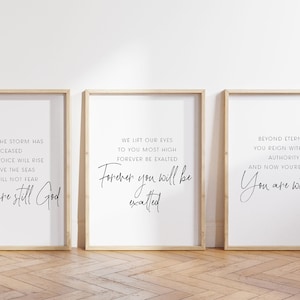 HE STORM HAS
CEASED
OICE WILL RISE
VE THE SEAS
LL NOT FEAR
re still God
WE LIFT OUR EYES
TO YOU MOST HIGH
FOREVER BE EXALTED
Forever you will be
exalted
BEYOND ETERN
YOU REIGN WITH
AUTHORITY
AND NOW YOURE
You are w